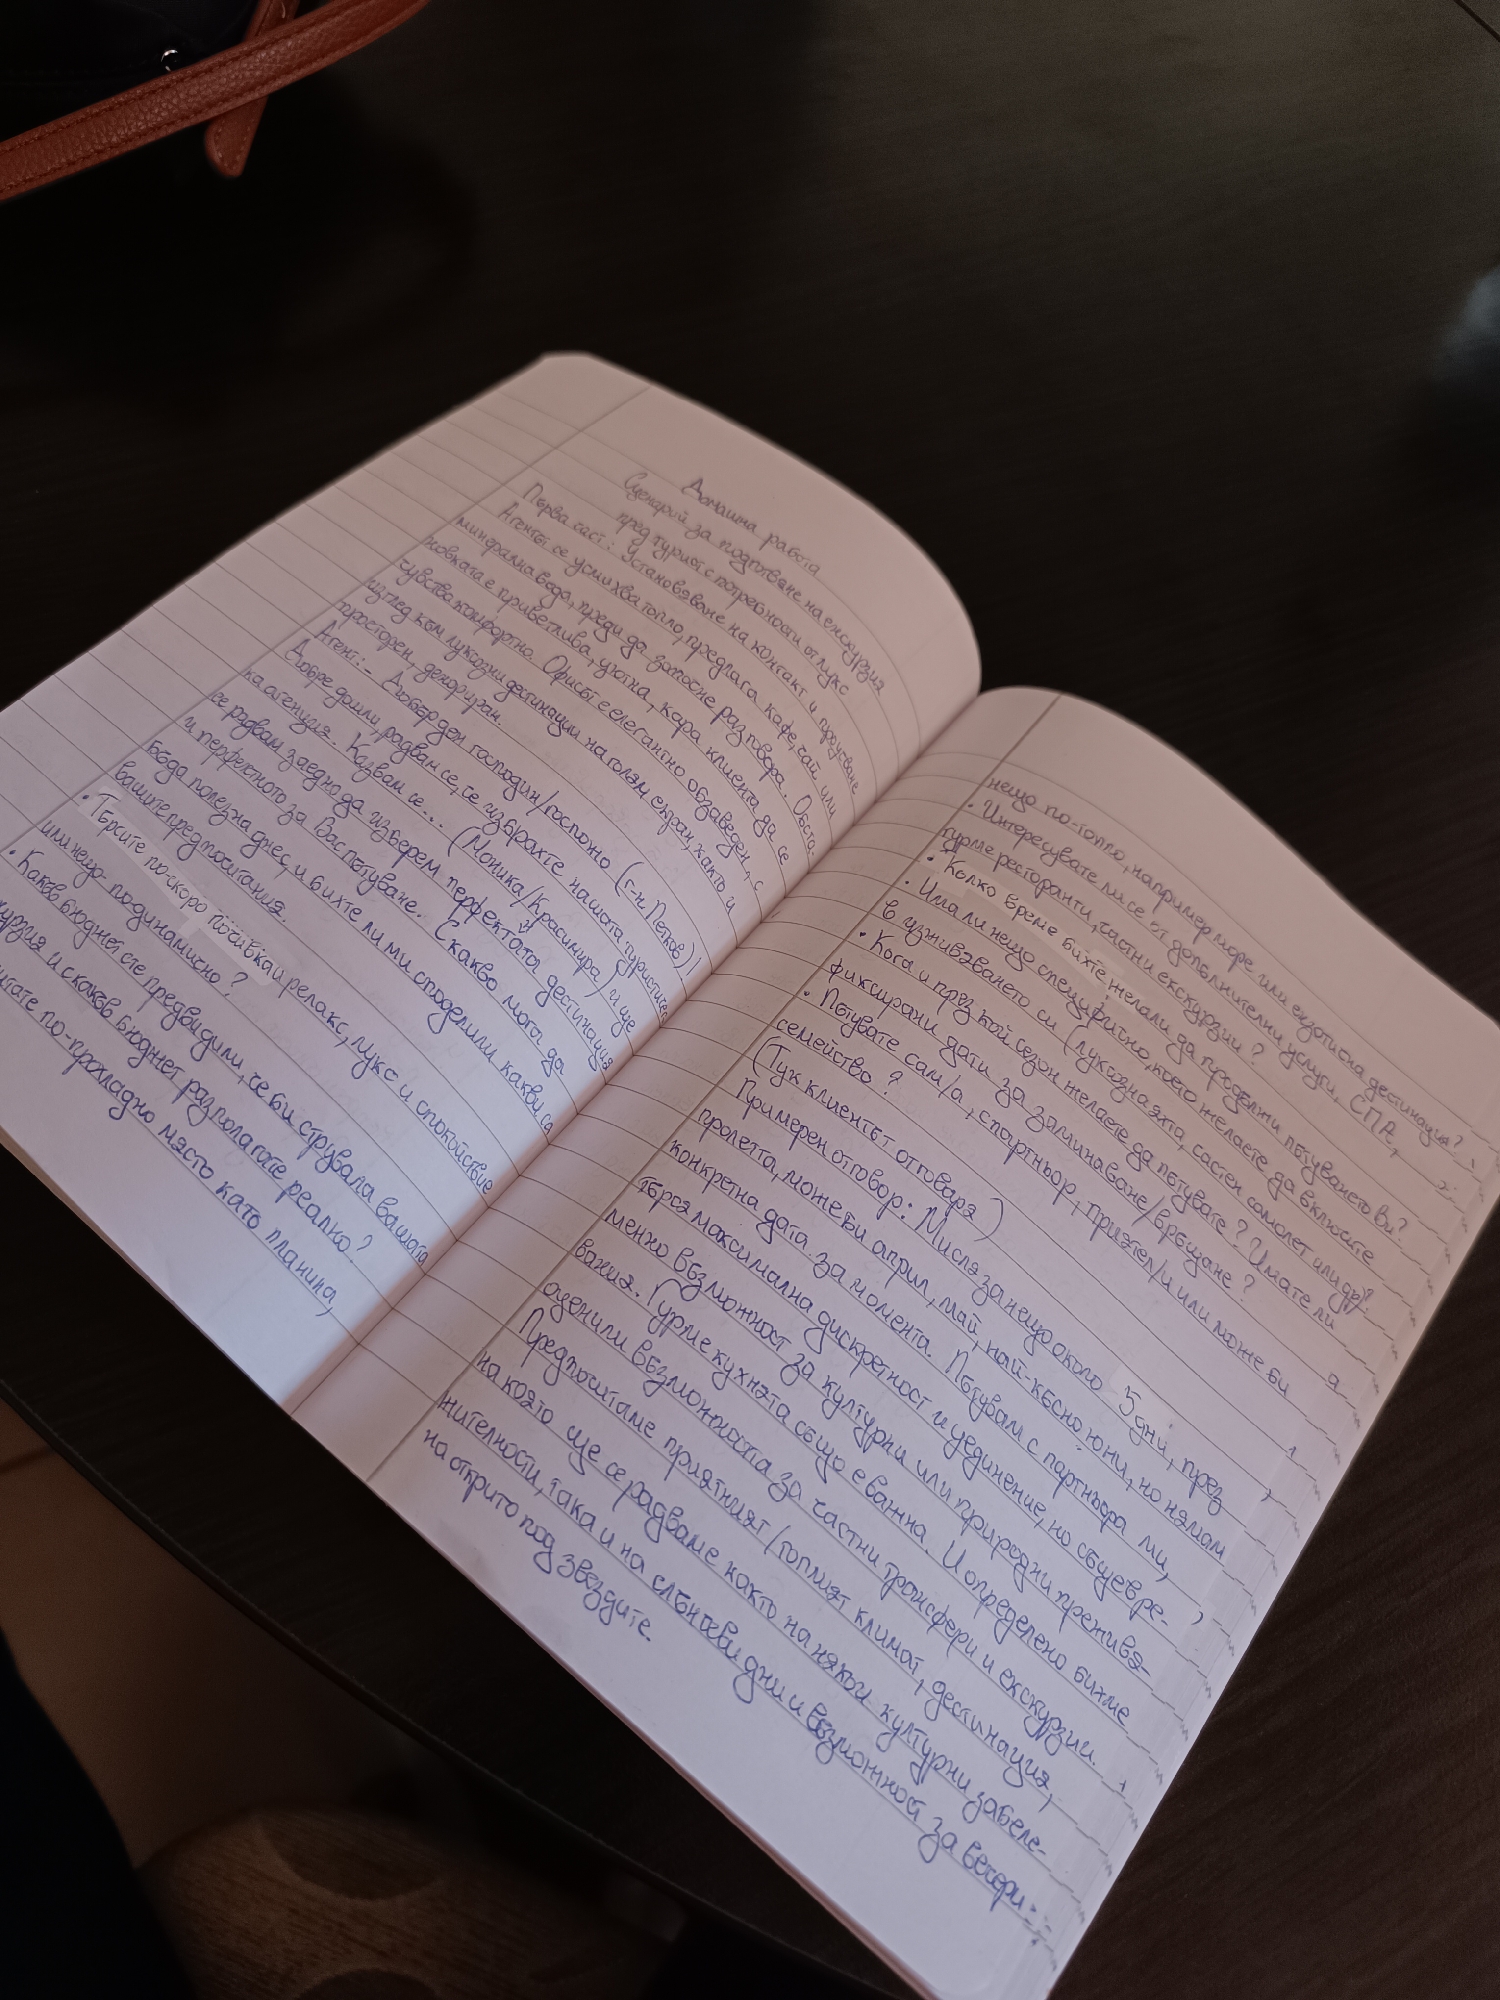 Домашна работа
Сценарий за подготвяне на екскурзия
пред турист с потребности от лукс
Първа част: Установяване на контакт и проучване
Агентът се усмихва топло, предлага кафе, чай или
минерална вода, преди да започне разговора. Обста-
новката е приветлива, уютна, кара клиента да се
чувства комфортно. Офисът е елегантно обзаведен, с
изглед към луксозни дестинации на голям екран, както и
просторен, декориран.
Агент: - Добър ден господин/госпожо (г-н. Петков)!
Добре дошли, радвам се, че избрахте нашата туристичес-
ка агенция. Казвам се... (Моника/Красимира) и ще
се радвам заедно да изберем перфектата дестинация
и перфектното за Вас пътуване. С какво мога да
бъда полезна днес, и бихте ли ми споделили какви са
вашите предпочитания.
• Търсите по-скоро почивка и релакс, лукс и спокойствие
или нещо по-динамично?
• Какъв бюджет сте предвидили, че би струвала вашата
курзия и с какъв бюджет разполагате реално?
итате по-прохладно място като планина,
нещо по-топло, например море или екзотична дестинация?
• Интересувате ли се от допълнителни услуги, СПА,
гурме ресторанти, частни екскурзии?
• Колко време бихте желали да продължи пътуването Ви?
• Има ли нещо специфично, което желаете да включите
в изживяването си (луксозна яхта, частен самолет или др)?
• Кога и през кой сезон желаете да пътувате? Имате ли
фиксирани дати за заминаване/връщане?
• Пътувате сам/а, с партньор, приятел/и или може би
семейство?
(Тук клиентът отговаря)
Примерен отговор: Мисля за нещо около 5 дни, през
пролетта, може би април, май, най-късно юни, но нямам
конкретна дата за момента. Пътувам с партньора ми,
търся максимална дискретност и уединение, но същевре-
менно възможност за културни или природни преживя-
вания. Гурме кухнята също е важна. И определено бихме
оценили възможността за частни трансфери и екскурзии.
Предпочитаме приятният/топлият климат, дестинация,
на която ще се радваме както на някои културни забеле-
жителности, така и на слънчеви дни и възможност за вечери
на открито под звездите.